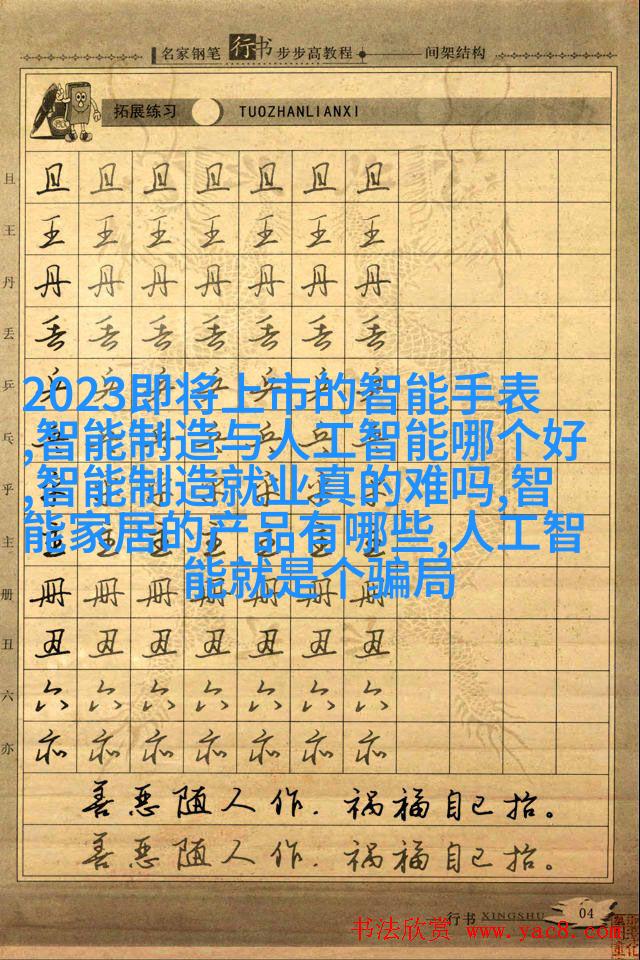 名家钢笔行书步步高教程 间架结构
拓展练习 TUOZHANLIANXI
且 且 且 且 且 且 且 且
王 王 王 王 王 王 王 王
丹 丹 丹 丹 丹 丹 丹 丹
丢 丢 丢 丢 丢 丢 丢 丢
乒
2023即将上市的智能手表
乓
,智能制造与人工智能哪个好
乎
,智能制造就业真的难吗,智
主
能家居的产品有哪些,人工智
能就是个骗局
册 册 册 册 册 册 册 册
丑 丑 丑 丑 丑 丑 丑 丑
六 六 六 六 六 六 六 六
亦 亦 亦 亦 亦 亦 亦 亦
善恶随人作.祸福自己招。
善恶随人作.祸福自己招。
行书 XINGSHU 04
书法欣赏 www.yac8.com